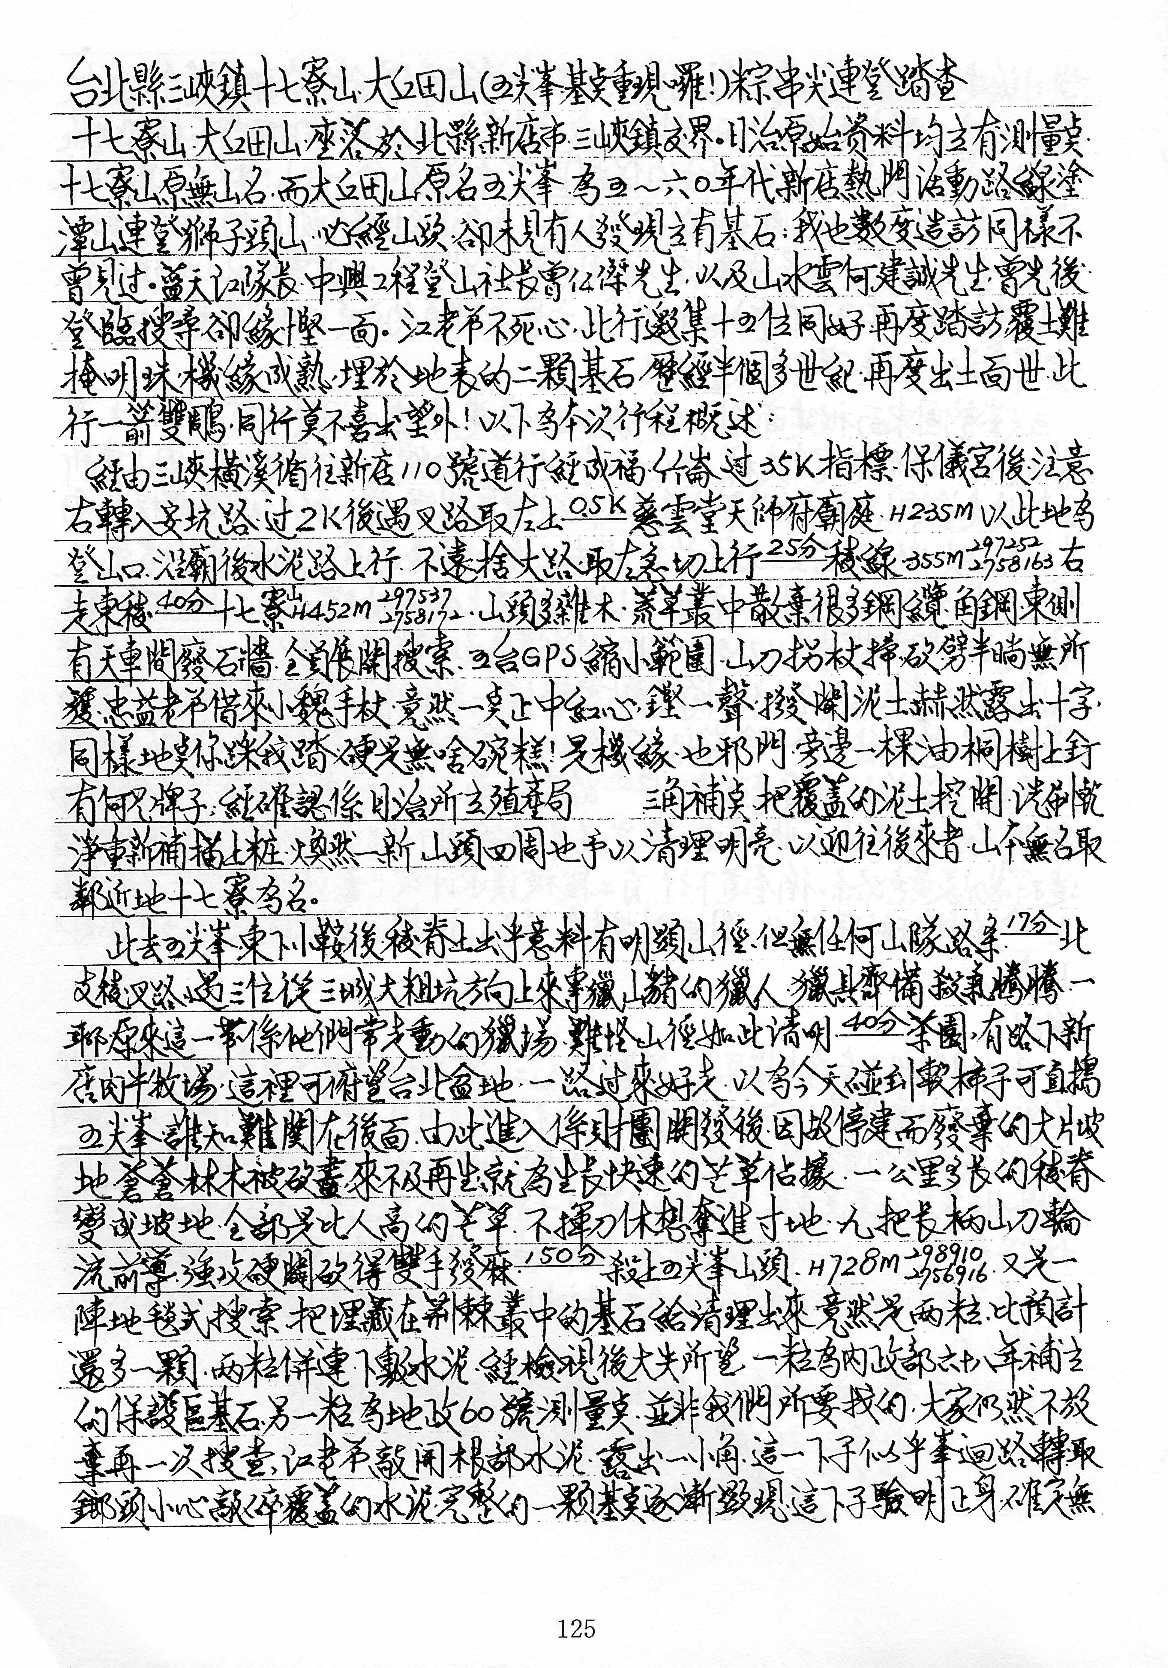 台北縣三峽鎮十七寮山.大坵田山(五尖峯.基點重現囉!)粽串尖連登踏查
十七寮山.大坵田山.座落於北縣新店市.三峽鎮交界。日治原始資料均立有測量點.
十七寮山原無山名.而大坵田山原名五尖峯.為五～六0年代新店熱門活動路線塗
潭山連登獅子頭山.必經山頭.卻未見有人發現立有基石;我也數度造訪同樣不
曾見过。藍天江隊長.中興工程登山社長曾仕傑先生.以及山水雲何建誠先生.曾先後.
登臨搜尋.卻緣慳一面。江老弟不死心.此行邀集十五位同好.再度踏訪.覆土難
掩明珠.機緣成熟.埋於地表的二顆基石.歷經半個多世紀.再度出土面世.此
行一箭雙鵰.同行莫不喜出望外!以下為本次行程概述:
經由三峽橫溪循往新店110號道行經成福.竹崙.过35K指標.保儀宮後.注意
右轉入安坑路.过2K後遇叉路取左上 0.5K 慈雲堂天師府廟庭.H235M以此地為
登山口.沿廟後水泥路上行.不遠捨大路.取左急切上行 25分 稜線.355M 297252 2758163 右
走東稜 40分 十七寮山H452M 297537 2758172.山頭多雜木.荒草叢中散棄很多鋼纜.角鋼.東側
有天車間廢石牆.全員展開搜索.五台GPS縮小範圍.山刀拐杖掃.砍.劈半晌無所
獲.忠益老弟借來小魏手杖.竟然一点正中紅心.鏗一聲.撥開泥土赫然露出十字.
同樣地點你踩我踏.硬是無啥碗糕!是機緣.也邪門.旁邊一棵油桐樹上釘
有何兄牌子;經確認係日治所立殖產局 三角補点.把覆蓋的泥土挖開.洗刷乾
淨重新補描上粧.煥然一新.山頭四周也予以清理明亮.以迎往後來者.山本無名取
鄰近地十七寮為名。
此去五尖峯.東下小鞍後稜脊土出乎意料有明顯山徑.但無任何山隊路条 17分 北
支稜叉路.遇三位從三城大粗坑方向上來專獵山豬的獵人.獵具齊備.殺氣騰騰.一
聊原來這一帶係他們常走動的獵場.難怪山徑如此清明 40分 茶園.有路下新
店肉牛牧場.這裡可俯望台北盆地.一路过來好走.以為今天碰到軟柿子可直搗
五尖峯.誰知難關在後面.由此進入係財團開發後.因故停建而廢棄的大片坡
地.蒼蒼林木被砍盡.來不及再生.就為生長快速的芒草佔據.一公里多長的稜脊
變成坡地.全部是比人高的芒草.不揮刀休想奪進寸地.九把長柄山刀輪
流前導.強攻硬闖.砍得雙手發麻 150分 殺上五尖峯山頭.H728M 298910 2756916.又是一
陣地毯式搜索.把埋藏在荊棘叢中的基石給清理出來.竟然是兩粒.比預計
還多一顆.兩粒併連下敷水泥.經檢視後大失所望.一粒為內政部六十八年補立
的保護區基石.另一粒為地政60號測量点.並非我們所要找的.大家仍然不放
棄再一次搜查;江老弟敲開根部水泥.露出一小角.這一下子似乎峯迴路轉取
鎯頭小心敲碎覆蓋的水泥.完整的一顆基点逐漸顯現.這下子驗明正身.確定無
125